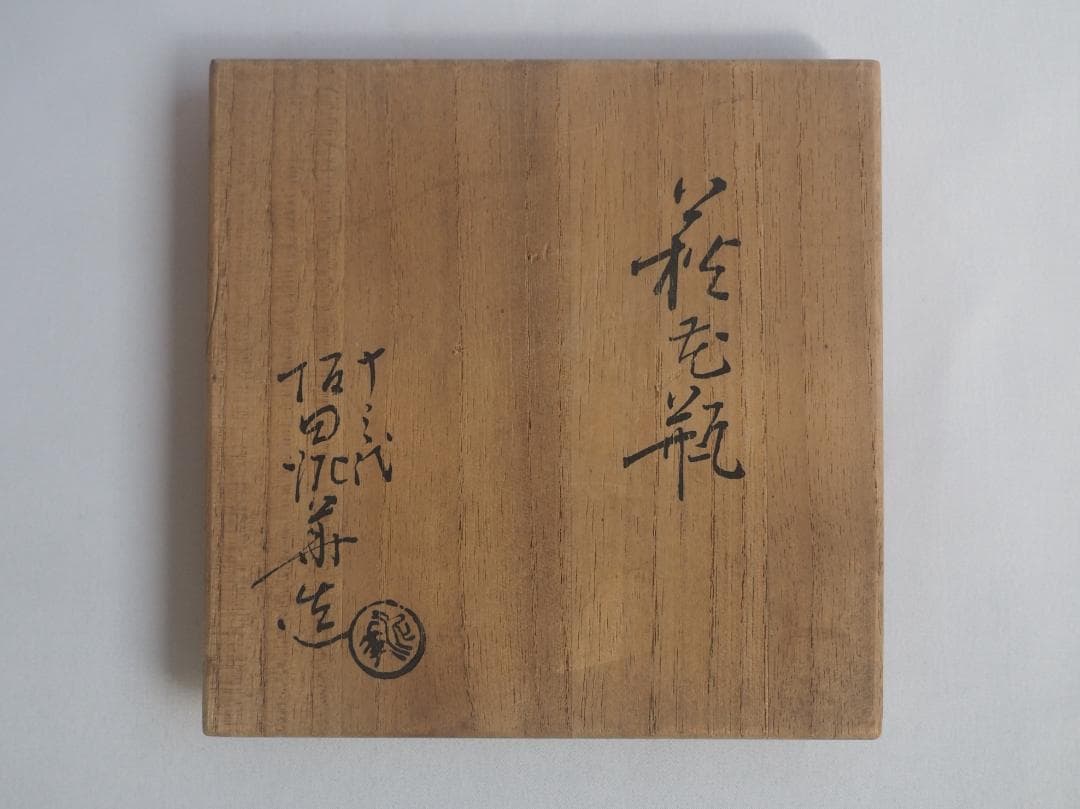 萩花瓶
十三代
坂田泥華造